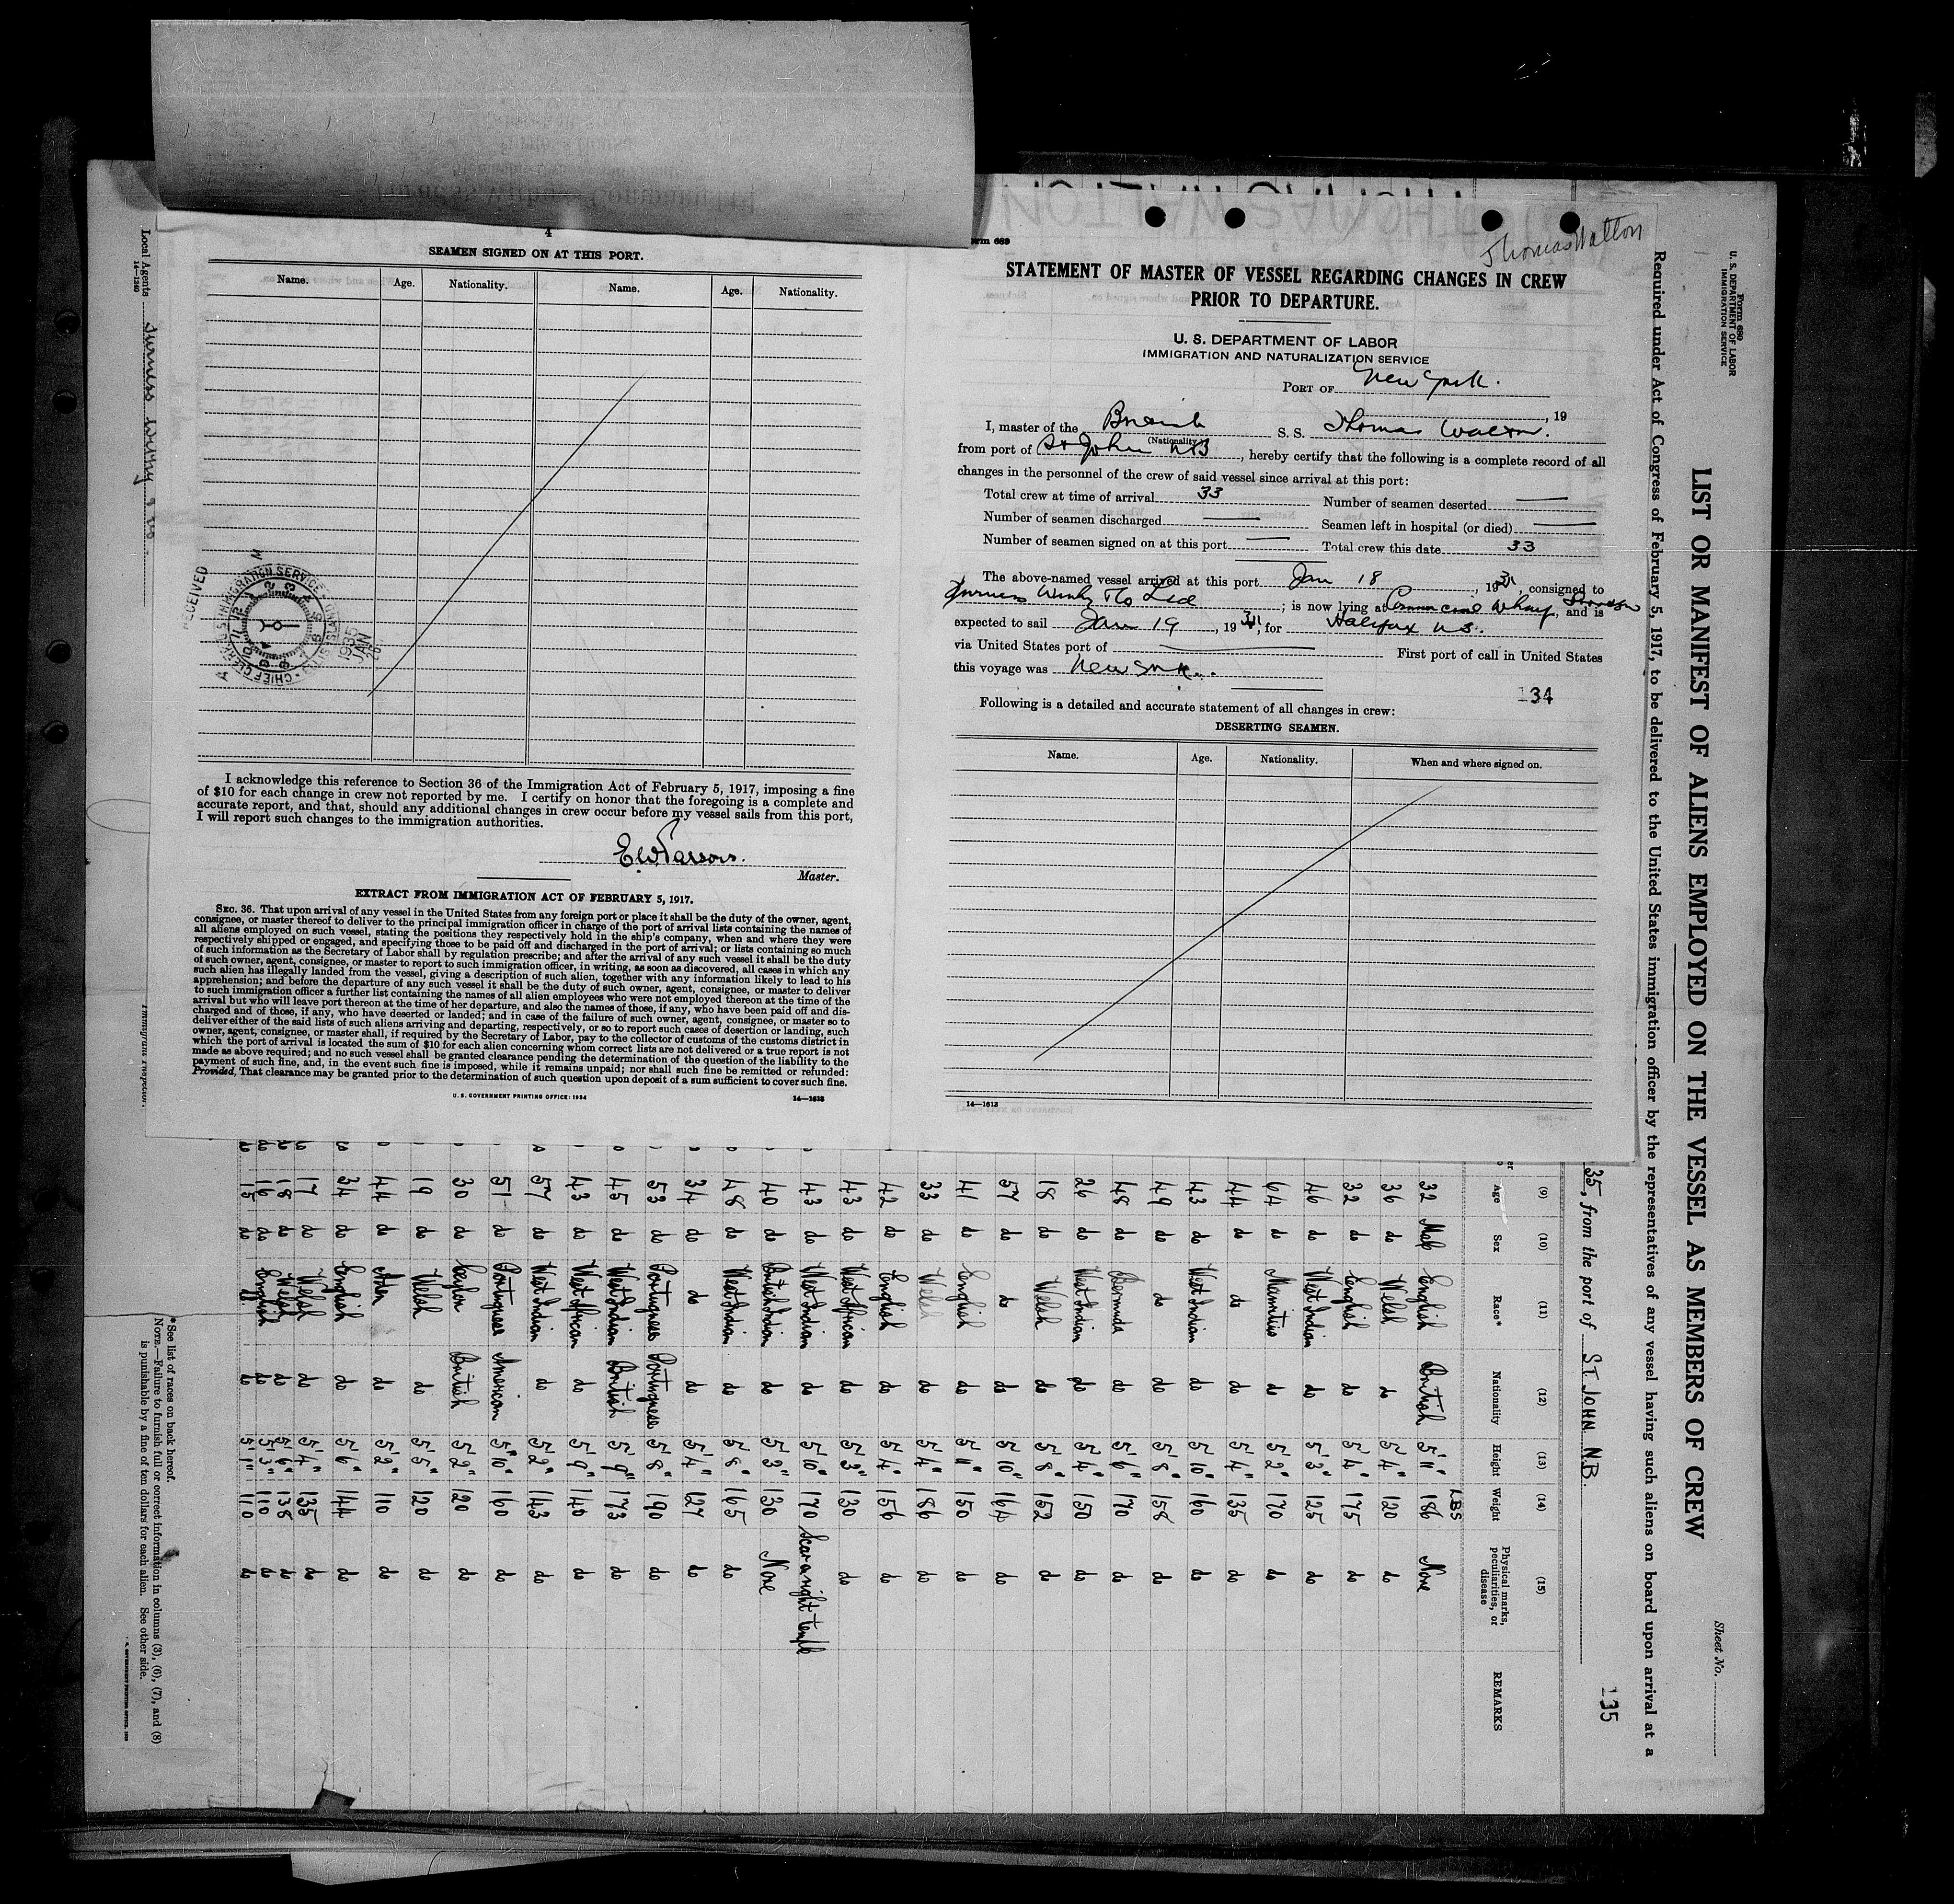 4
SEAMEN SIGNED ON AT THIS PORT.
Name. Age. Nationality. Name. Age. Nationality.
RECEIVED
1935 JAN
I acknowledge this reference to Section 36 of the Immigration Act of February 5, 1917, imposing a fine
of $10 for each change in crew not reported by me. I certify on honor that the foregoing is a complete and
accurate report, and that, should any additional changes in crew occur before my vessel sails from this port,
I will report such changes to the immigration authorities.
E.W. Parsons.
Master.
EXTRACT FROM IMMIGRATION ACT OF FEBRUARY 5, 1917.
SEC. 36. That upon arrival of any vessel in the United States from any foreign port or place it shall be the duty of the owner, agent,
consignee, or master thereof to deliver to the principal immigration officer in charge of the port of arrival lists containing the names of
all aliens employed on such vessel, stating the positions they respectively hold in the ship's company, when and where they were
respectively shipped or engaged, and specifying those to be paid off and discharged in the port of arrival; or lists containing so much
of such information as the Secretary of Labor shall by regulation prescribe; and after the arrival of any such vessel it shall be the duty
of such owner, agent, consignee, or master to report to such immigration officer, in writing, as soon as discovered, all cases in which any
such alien has illegally landed from the vessel, giving a description of such alien, together with any information likely to lead to his
apprehension; and before the departure of any such vessel it shall be the duty of such owner, agent, consignee, or master to deliver
to such immigration officer a further list containing the names of all alien employees who were not employed thereon at the time of the
arrival but who will leave port thereon at the time of her departure, and also the names of those, if any, who have been paid off and dis-
charged and of those, if any, who have deserted or landed; and in case of the failure of such owner, agent, consignee, or master so to
deliver either of the said lists of such aliens arriving and departing, respectively, or so to report such cases of desertion or landing, such
owner, agent, consignee, or master shall, if required by the Secretary of Labor, pay to the collector of customs of the customs district in
which the port of arrival is located the sum of $10 for each alien concerning whom correct lists are not delivered or a true report is not
made as above required; and no such vessel shall be granted clearance pending the determination of the question of the liability to the
payment of such fine, and, in the event such fine is imposed, while it remains unpaid; nor shall such fine be remitted or refunded:
Provided, That clearance may be granted prior to the determination of such question upon deposit of a sum sufficient to cover such fine.
U. S. GOVERNMENT PRINTING OFFICE: 1934 14—1613
Form 689
Thomas Walton
STATEMENT OF MASTER OF VESSEL REGARDING CHANGES IN CREW
PRIOR TO DEPARTURE.
U. S. DEPARTMENT OF LABOR
IMMIGRATION AND NATURALIZATION SERVICE
PORT OF New York.
, 19
I, master of the British S. S. Thomas Walton.
(Nationality)
from port of St John NB, hereby certify that the following is a complete record of all
changes in the personnel of the crew of said vessel since arrival at this port:
Total crew at time of arrival 33 Number of seamen deserted
Number of seamen discharged Seamen left in hospital (or died)
Number of seamen signed on at this port Total crew this date 33
The above-named vessel arrived at this port Jan 18, 19, consigned to
Furness Withy & Co Ltd; is now lying at Commercial Wharf, and is
expected to sail Jan 19, 19, for Halifax N.S.
via United States port of First port of call in United States
this voyage was New York.
134
Following is a detailed and accurate statement of all changes in crew:
DESERTING SEAMEN.
Name. Age. Nationality. When and where signed on.
14—1613
Form 680
U. S. DEPARTMENT OF LABOR
IMMIGRATION SERVICE
Sheet No.
LIST OR MANIFEST OF ALIENS EMPLOYED ON THE VESSEL AS MEMBERS OF CREW
Required under Act of Congress of February 5, 1917, to be delivered to the United States immigration officer by the representatives of any vessel having such aliens on board upon arrival at a
35, from the port of ST. JOHN N.B.
135
(9) (10) (11) (12) (13) (14) (15)
Age Sex Race* Nationality Height Weight Physical marks, peculiarities, or disease REMARKS
LBS
32 Male English British 5'11" 186 None
36 do Welsh do 5'4" 120 do
32 do English do 5'4" 175 do
46 do West Indian do 5'3" 125 do
64 do Mauritius do 5'2" 170 do
44 do do do 5'4" 135 do
43 do West Indian do 5'10" 160 do
49 do do do 5'8" 158 do
48 do Bermuda do 5'6" 170 do
26 do West Indian do 5'4" 150 do
18 do Welsh do 5'8" 152 do
57 do do do 5'10" 164 do
41 do English do 5'11" 150 do
33 do Welsh do 5'4" 186 do
42 do English do 5'4" 156 do
43 do West African do 5'3" 130 do
43 do West Indian do 5'10" 170 Scar on right temple
40 do British Indian do 5'3" 130 None
48 do West Indian do 5'8" 165 do
34 do do do 5'4" 127 do
53 do Portuguese Portuguese 5'8" 190 do
45 do West Indian British 5'9" 173 do
43 do West African do 5'9" 140 do
57 do West Indian do 5'2" 143 do
51 do Portuguese American 5'10" 160 do
30 do Ceylon British 5'2" 120 do
19 do Welsh do 5'5" 120 do
44 do Aden do 5'2" 110 do
34 do English do 5'6" 144 do
17 do Welsh do 5'4" 135 do
18 do Welsh do 5'6" 138 do
16 do English do 5'3" 110 do
15 do do 5'1" 110 do
* See list of races on back hereof.
NOTE.—Failure to furnish full or correct information in columns (3), (6), (7), and (8)
is punishable by a fine of ten dollars for each alien. See other side.
Local Agents Furness Withy & Co
14—1240
Immigrant Inspector.